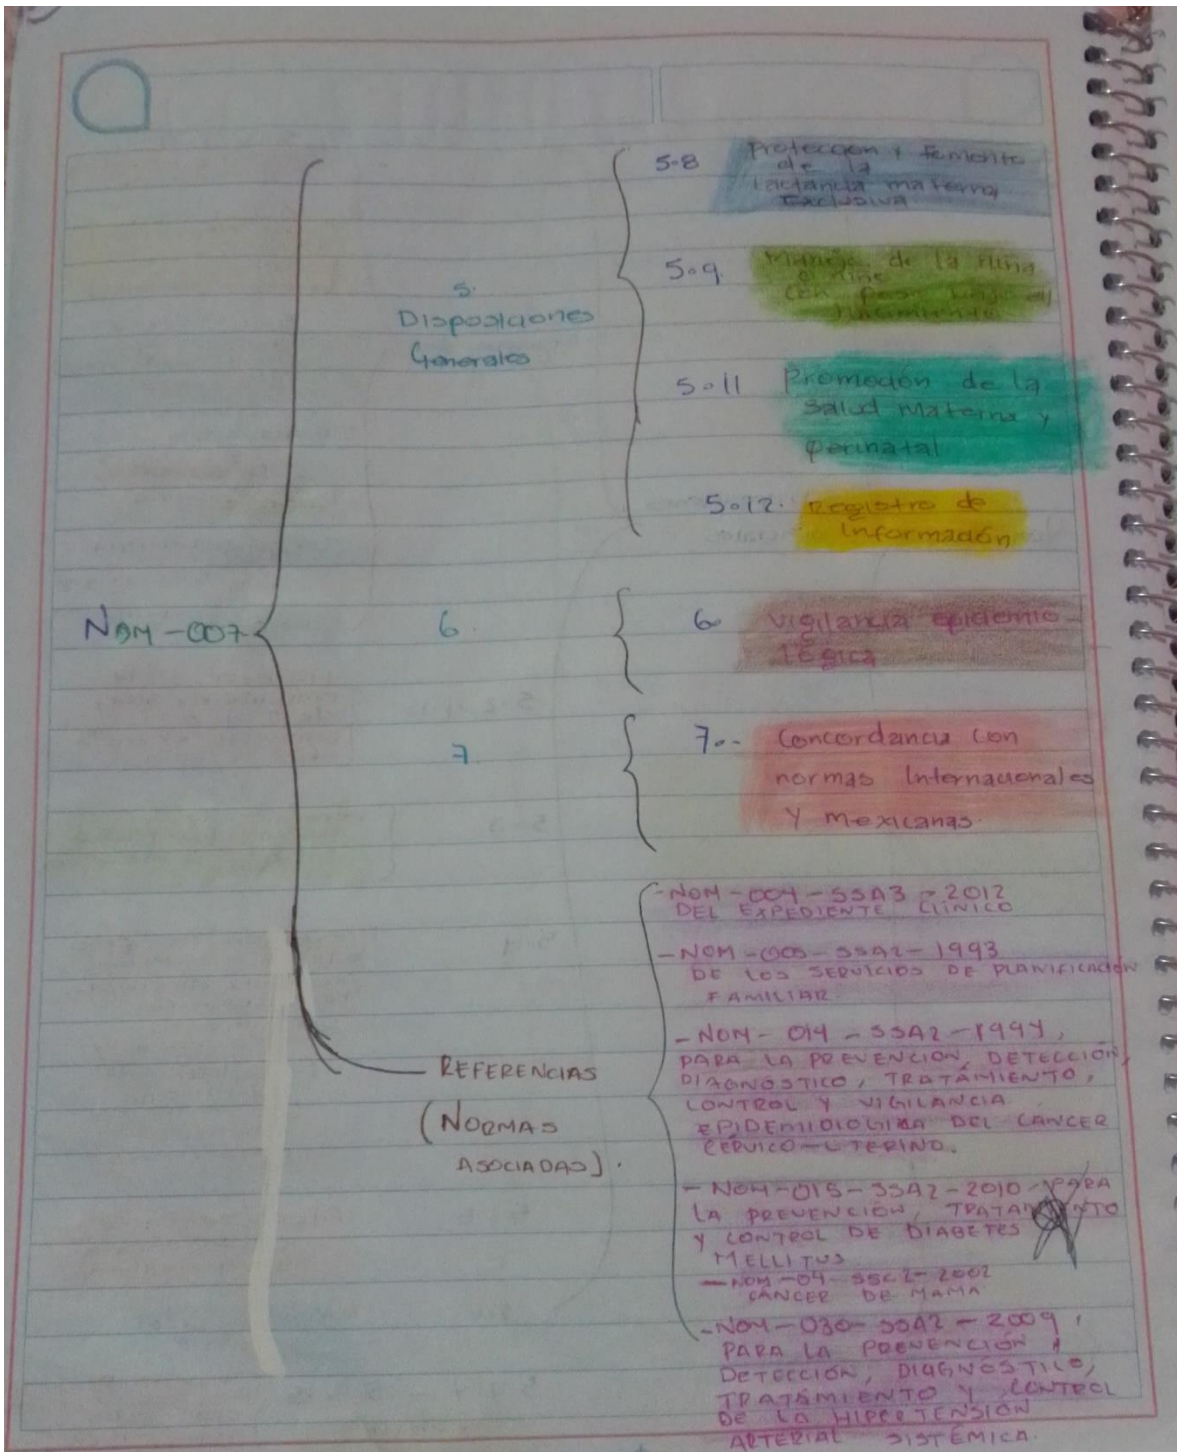 5.8 Protección y fomento
de la
Lactancia materna
Exclusiva
5.9. Manejo de la niña
o niño
con peso bajo al
nacimiento
5.
Disposiciones
Generales
5.11 Promoción de la
Salud materna y
perinatal
5.12. Registro de
Información
NOM-007
6.
6. Vigilancia epidemio-
lógica
7.
7.- Concordancia con
normas Internacionales
y mexicanas.
-NOM-004-SSA3-2012
DEL EXPEDIENTE CLÍNICO
-NOM-005-SSA2-1993
DE LOS SERVICIOS DE PLANIFICACIÓN
FAMILIAR.
-NOM-014-SSA2-1994,
PARA LA PREVENCIÓN, DETECCIÓN,
DIAGNÓSTICO, TRATAMIENTO,
CONTROL Y VIGILANCIA
EPIDEMIOLOGICA DEL CANCER
CÉRVICO-UTERINO.
REFERENCIAS
(NORMAS
ASOCIADAS).
-NOM-015-SSA2-2010-PARA
LA PREVENCIÓN, TRATAMIENTO
Y CONTROL DE DIABETES
MELLITUS
-NOM-04-SSC2-2002
CÁNCER DE MAMA
-NOM-030-SSA2-2009,
PARA LA PREVENCIÓN,
DETECCIÓN, DIAGNÓSTICO,
TRATAMIENTO Y CONTROL
DE LA HIPERTENSIÓN
ARTERIAL SISTÉMICA.